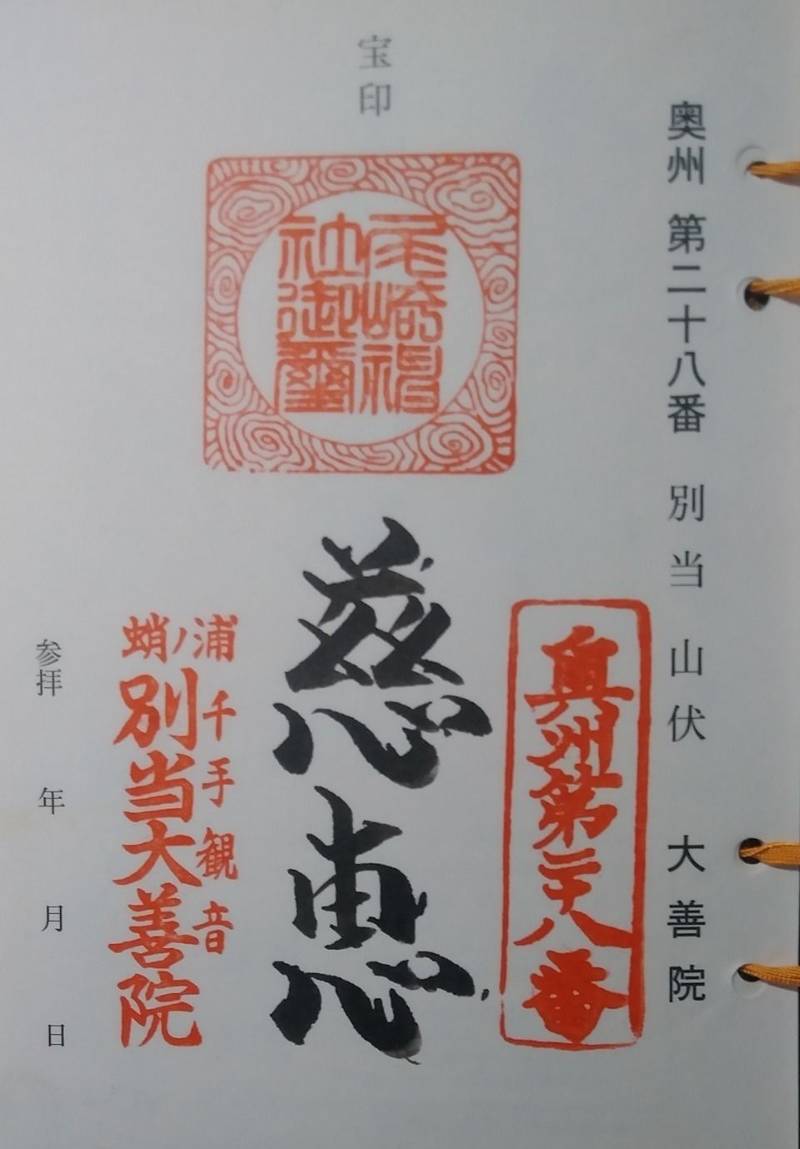 奥州 第二十八番 別当 山伏 大善院
宝印
尾崎神
社御璽
奥州第二十八番
慈恵
浦千手観音
蛸ノ
別当大善院
参拝 年 月 日